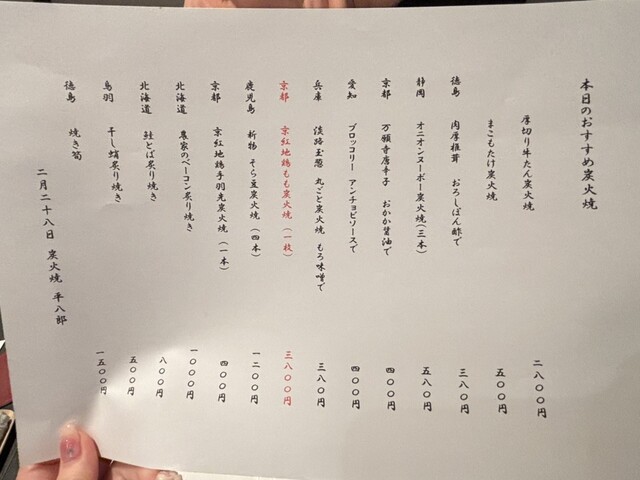 本日のおすすめ炭火焼
厚切り牛たん炭火焼 二八〇〇円
まこもたけ炭火焼 五〇〇円
徳島 肉厚椎茸 おろしぽん酢で 三八〇円
静岡 オニオンヌーボー炭火焼(三本) 五八〇円
京都 万願寺唐辛子 おかか醤油で 四〇〇円
愛知 ブロッコリー アンチョビソースで 四〇〇円
兵庫 淡路玉葱 丸ごと炭火焼 もろ味噌で 三八〇円
京都 京紅地鶏もも炭火焼(一枚) 三八〇〇円
鹿児島 新物 そら豆炭火焼(四本) 一二〇〇円
京都 京紅地鶏手羽先炭火焼(一本) 四〇〇円
北海道 農家のベーコン炙り焼き 一〇〇〇円
北海道 鮭とば炙り焼き 八〇〇円
鳥羽 干し蛸炙り焼き 五〇〇円
徳島 焼き筍 一五〇〇円
二月二十八日 炭火焼 平八郎